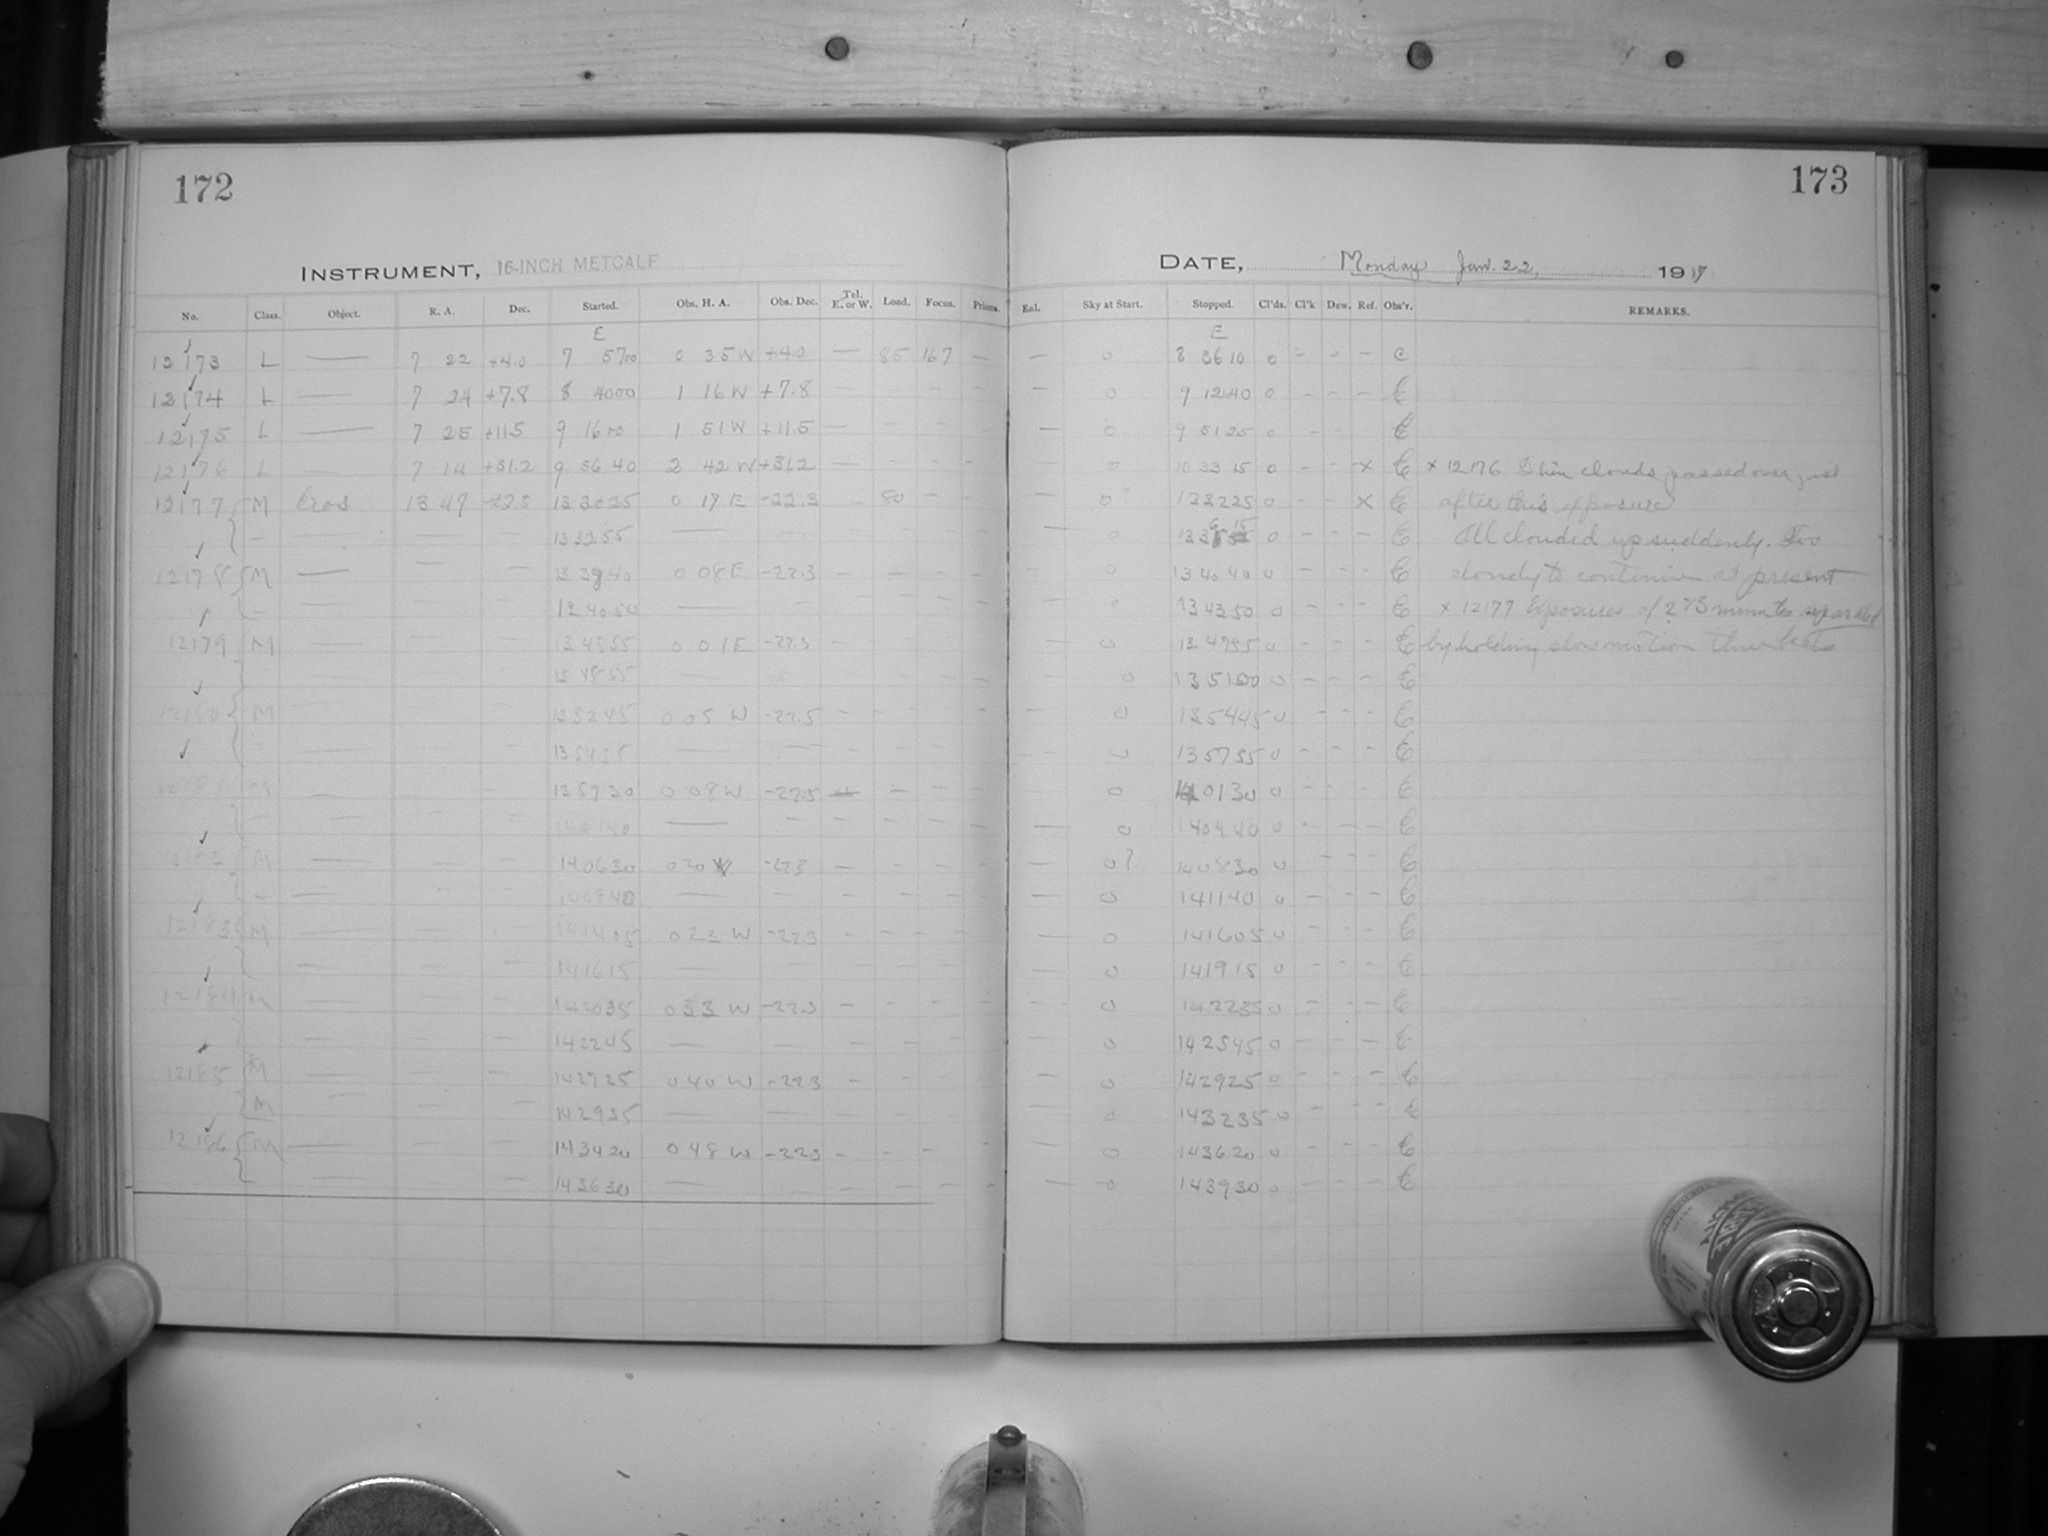 172
173
INSTRUMENT, 16-INCH METCALF
DATE, Monday Jan. 22, 1917
No. Class. Object. R. A. Dec. Started. Obs. H. A. Obs. Dec. Tel. E. or W. Load. Focus. Prisms. Exl. Sky at Start. Stopped. Cl'ds. Cl'k Dew. Ref. Obs'r. REMARKS.
E E
12173 L — 7 22 +4.0 7 5700 0 35 W +4.0 — 85 167 — — 0 8 3610 0 - - - C
12174 L — 7 24 +7.8 8 4000 1 16 W +7.8 — 0 9 1240 0 - - - E
12175 L — 7 25 +11.5 9 1600 1 51 W +11.5 — 0 9 5125 0 - - - E
12176 L — 7 14 +31.2 9 5640 2 42 W +31.2 — 0 10 3315 0 - - x E x 12176 Thin clouds passed over just
12177 M Eros 13 49 -22.3 133025 0 19 E -22.3 — 80 - - — 0? 133225 0 - - x E after this exposure
— 133255 — 0 0 - - - E All clouded up suddenly. Too
12178 M — 133840 0 08 E -22.3 — 0 134040 0 - - - E cloudy to continue at present
— 134050 — 0 134350 0 - - - E x 12177 Exposures of 2 & 3 minutes separated
12179 M — 134555 0 01 E -22.3 — 0 134755 0 - - - E by holding slow motion three beats
134855 — 0 0 - - - E
12180 M — 135245 0 05 W -22.5 — 0 135445 0 - - - E
— 135455 — 0 135755 0 - - - E
12181 M — 135930 0 08 W -22.5 — 0 140130 0 - - - E
— 140140 — 0 140440 0 - - - E
12182 M — 140630 0 20 W -22.3 — 0? 140830 0 - - - E
— 140840 — 0 141140 0 - - - E
12183 M — 141405 0 23 W -22.3 — 0 141605 0 - - - E
— 141615 — 0 141915 0 - - - E
12184 M — 142035 0 33 W -22.3 — 0 142235 0 - - - E
— 142245 — 0 142545 0 - - - E
12185 M — 142725 0 40 W -22.3 — 0 142925 0 - - - E
M — 142935 — 0 143235 0 - - - E
12186 M — 143420 0 48 W -22.3 — 0 143620 0 - - - E
— 143630 — 0 143930 0 - - - E